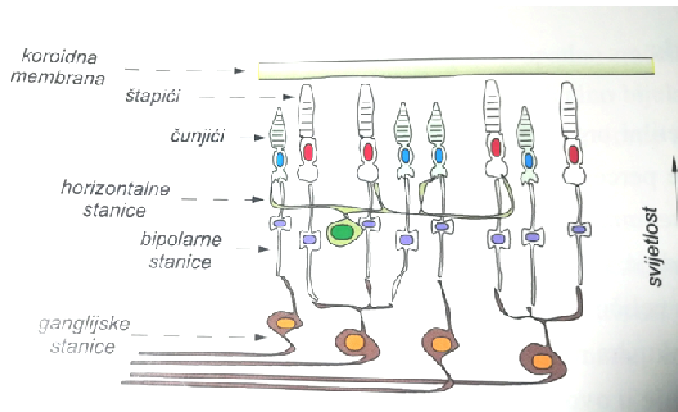 koroidna
membrana
štapići
čunjići
horizontalne
stanice
bipolarne
stanice
ganglijske
stanice
svijetlost